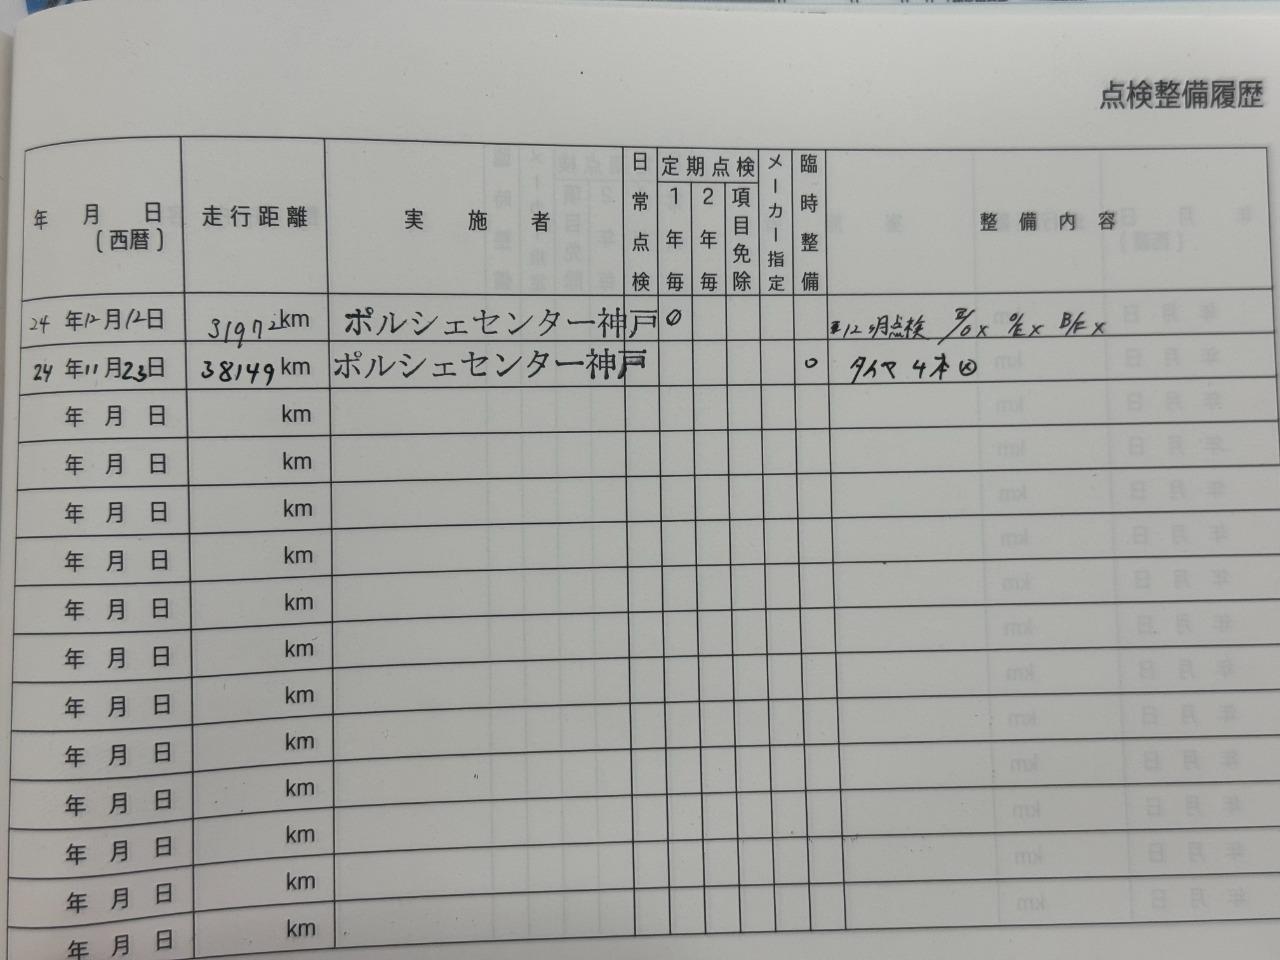 点検整備履歴
年 月 日 (西暦) 走行距離 実施者 日常点検 定期点検 1年毎 2年毎 項目免除 メーカー指定 臨時整備 整備内容
24年12月12日 31972km ポルシェセンター神戸 12ヶ月点検 O/E x B/F x
24年11月23日 38149km ポルシェセンター神戸 ○ タイヤ 4本
年 月 日 km
年 月 日 km
年 月 日 km
年 月 日 km
年 月 日 km
年 月 日 km
年 月 日 km
年 月 日 km
年 月 日 km
年 月 日 km
年 月 日 km
年 月 日 km